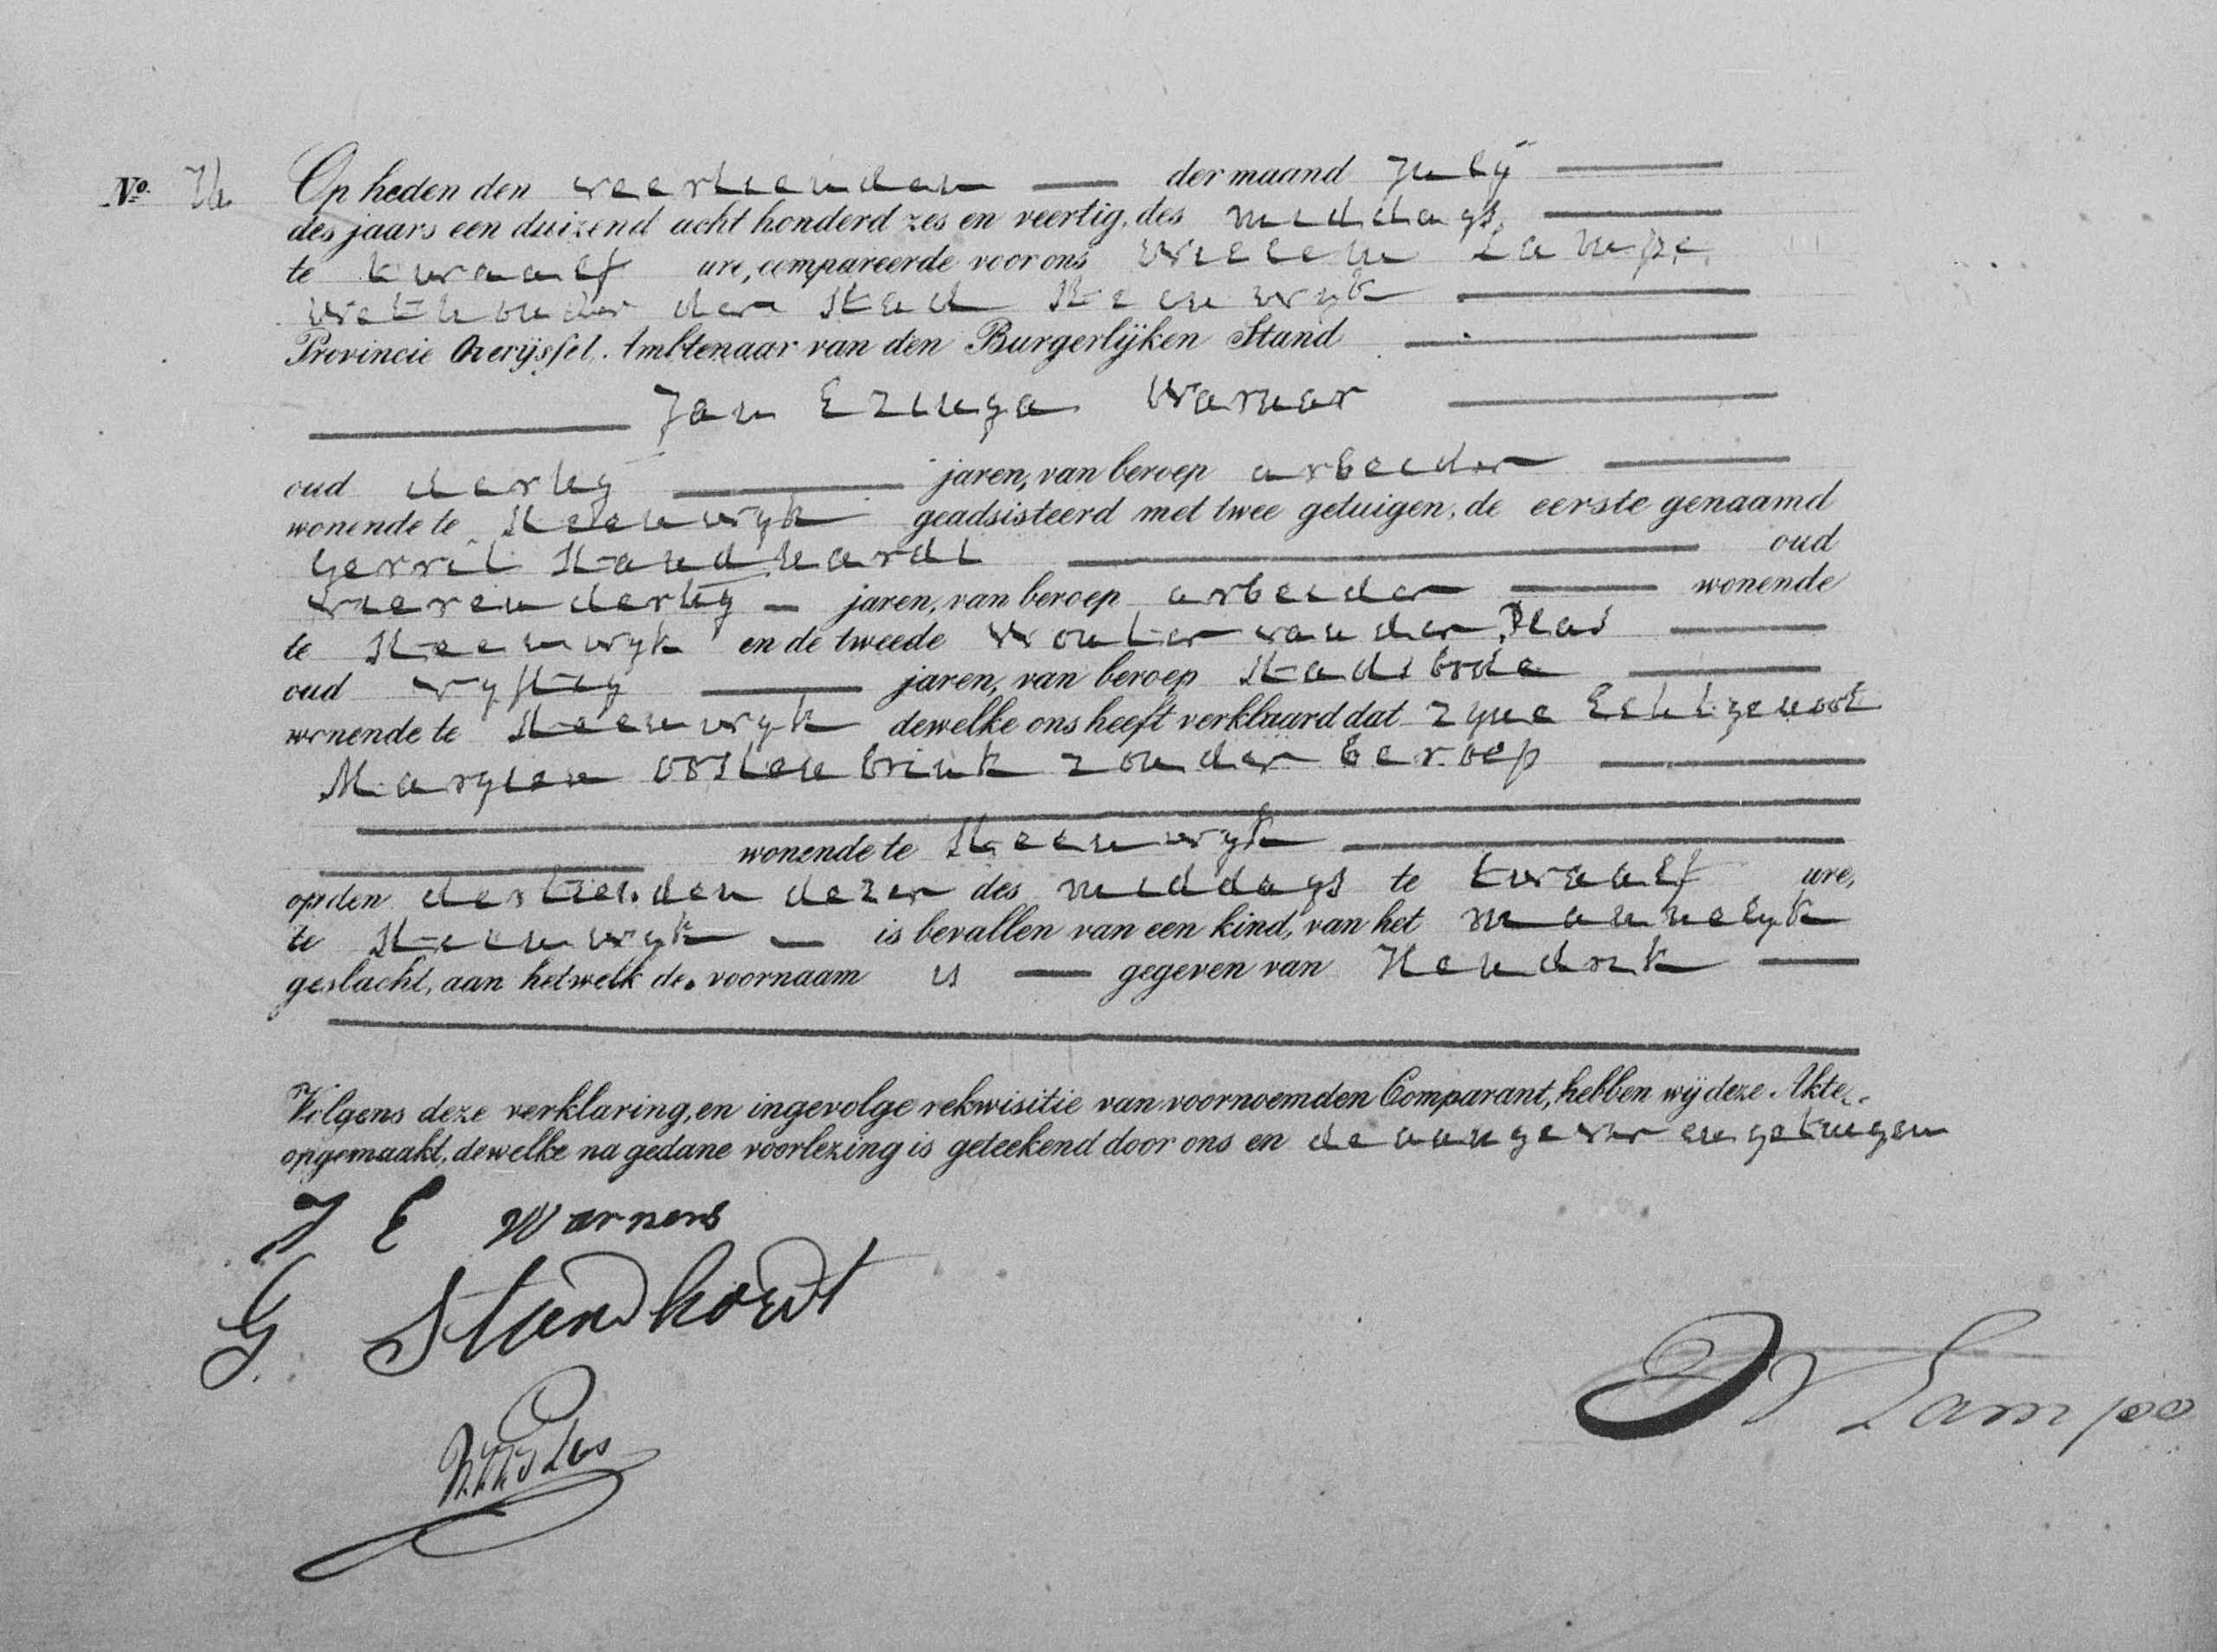 No. 72 Op heden den veertienden der maand July
des jaars een duizend acht honderd zes en veertig, des middags
te twaalf ure, compareerde voor ons Willem Lampe
Wethouder der Stad Steenwyk
Provincie Overijssel. Ambtenaar van den Burgerlijken Stand
Jan Ezinga Warner
oud dertig jaren, van beroep arbeider
wonende te Steenwyk geadsisteerd met twee getuigen, de eerste genaamd
Gerrit Standhardt oud
vierendertig jaren, van beroep arbeider wonende
te Steenwyk en de tweede Wouter van der Plas
oud vyftig jaren, van beroep Stadsbode
wonende te Steenwyk dewelke ons heeft verklaard dat zyne Echtgenoot
Margien Oostenbrink zonder beroep
wonende te Steenwyk
op den dertienden dezer des middags te twaalf ure,
te Steenwyk is bevallen van een kind, van het mannelyk
geslacht, aan hetwelk de voornaam is gegeven van Hendrik
Volgens deze verklaring, en ingevolge rekwisitie van voornoemden Comparant, hebben wij deze Akte
opgemaakt, dewelke na gedane voorlezing is geteekend door ons en de aangever en getuigen
J E Warners
G. Standhordt
W Lampe